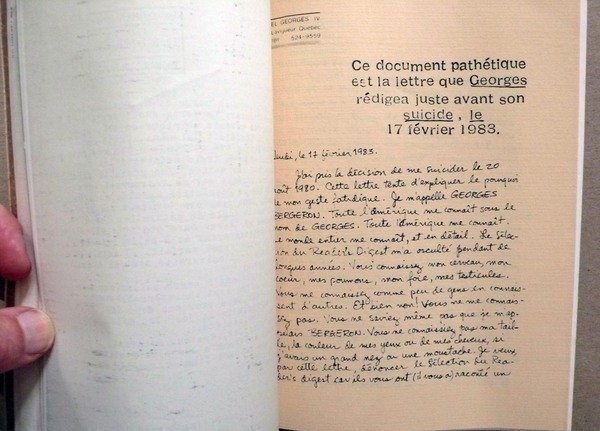 EL GEORGES IV
Longueur Québec
524-9559
Ce document pathétique
est la lettre que Georges
rédigea juste avant son
suicide, le
17 février 1983.
le 17 février 1983.
J'ai pris la décision de me suicider le 20
août 1980. Cette lettre tente d'expliquer le pourquoi
de mon geste fatidique. Je m'appelle GEORGES
BERGERON. Toute l'Amérique me connait sous le
nom de GEORGES. Toute l'Amérique me connait.
Le monde entier me connaît, et en détail. Le Sélec-
tion du Reader's Digest m'a osculté pendant de
longues années. Vous connaissez mon cerveau, mon
coeur, mes poumons, mon foie, mes testicules.
Vous me connaissez comme peu de gens en connais-
sent d'autres. Et bien non! Vous ne me connais-
sez pas. Vous ne saviez même pas que je m'ap-
pelais BERGERON. Vous ne connaissiez pas ma tail-
le, la couleur de mes yeux ou de mes cheveux, si
j'avais un grand nez ou une moustache. Je veux,
par cette lettre, dénoncer le Sélection du Rea-
der's digest car ils vous ont (il vous a) raconté un